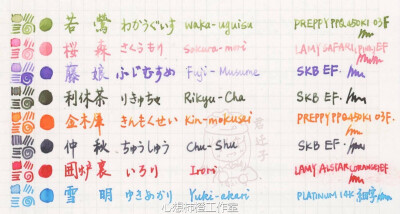 若鶯 わかうぐいす waka-uguisu PREPPY PPQ 4SOKI 03F
桜森 さくらもり Sakura-mori LAMY SAFARI, Pink, EF
藤娘 ふじむすめ Fuji-Musume SKB EF.
利休茶 りきゅうちゃ Rikyu-Cha SKB EF.
金木犀 きんもくせい Kin-mokusei PREPPY PPQ 4SOKI 03F.
仲秋 ちゅうしゅう Chu-Shu SKB EF.
囲炉裏 いろり Irori LAMY ALSTAR, ORANGE, EF
雪明 ゆきあかり Yuki-akari PLATINUM 14K 細字
心想柿橙工作室